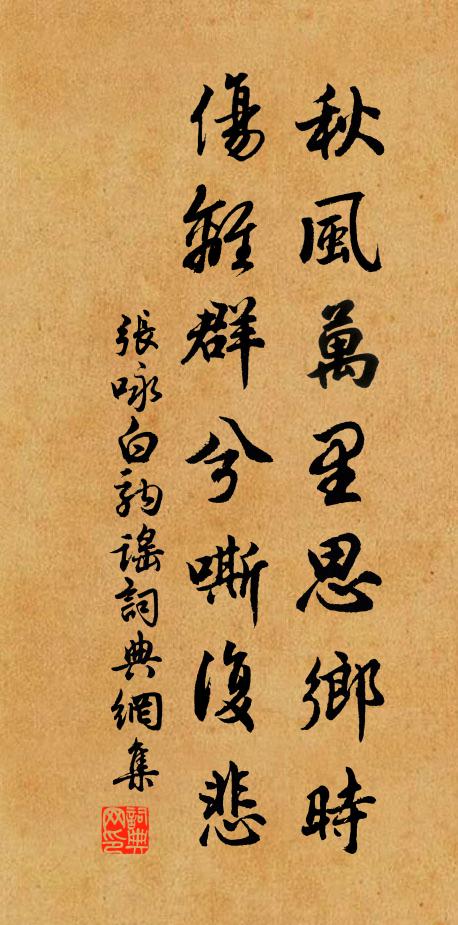 秋風萬里思鄉時
傷離群兮嘶復悲
張咏白駒謠詞典網集
詞典网印